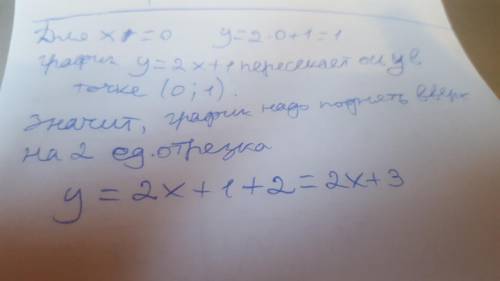 Для x=0 y=2·0+1=1
график y=2x+1 пересекает ось y в
точке (0;1).
Значит, график надо поднять вверх
на 2 ед. отрезка
y=2x+1+2=2x+3